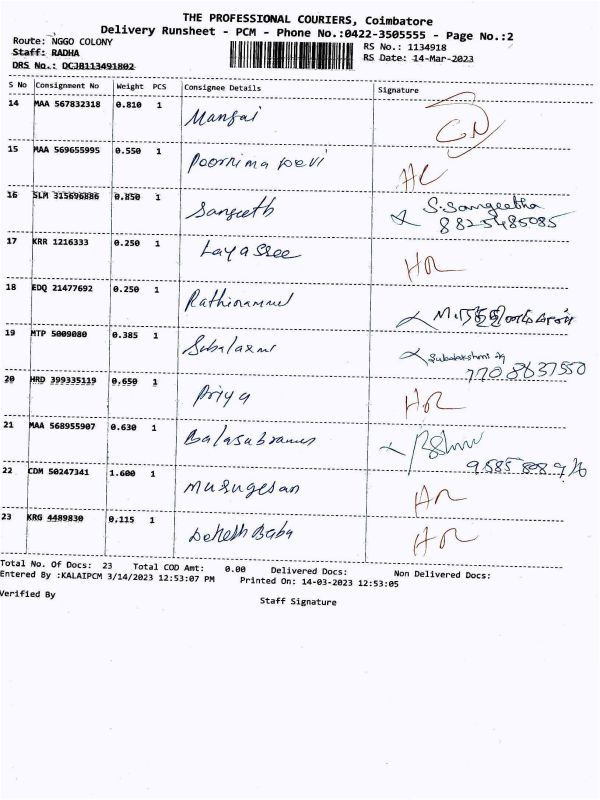 THE PROFESSIONAL COURIERS, Coimbatore
Delivery Runsheet - PCM - Phone No.:0422-3505555 - Page No.:2
Route: NGGO COLONY
RS No.: 1134918
Staff: RADHA
RS Date: 14-Mar-2023
DRS No.: DCJB113491802
S No Consignment No Weight PCS Consignee Details Signature
14 MAA 567832318 0.810 1 Mangai CN
15 MAA 569655995 0.550 1 Poornima Devi
16 SLM 315696886 0.850 1 Sangeeth S.Sangeetha
8825485085
17 KRR 1216333 0.250 1 Layasree
18 EDQ 21477692 0.250 1 Rathinammal
19 MTP 5009080 0.385 1 Subalaxmi Subalakshmi
7708637550
20 HRD 399335119 0.650 1 Priya
21 MAA 568955907 0.630 1
22 CDM 50247341 1.600 1 Murugesan
23 KRG 4489830 0.115 1 Baba
Total No. Of Docs: 23 Total COD Amt: 0.00 Delivered Docs: Non Delivered Docs:
Entered By :KALAIPCM 3/14/2023 12:53:07 PM Printed On: 14-03-2023 12:53:05
Verified By
Staff Signature